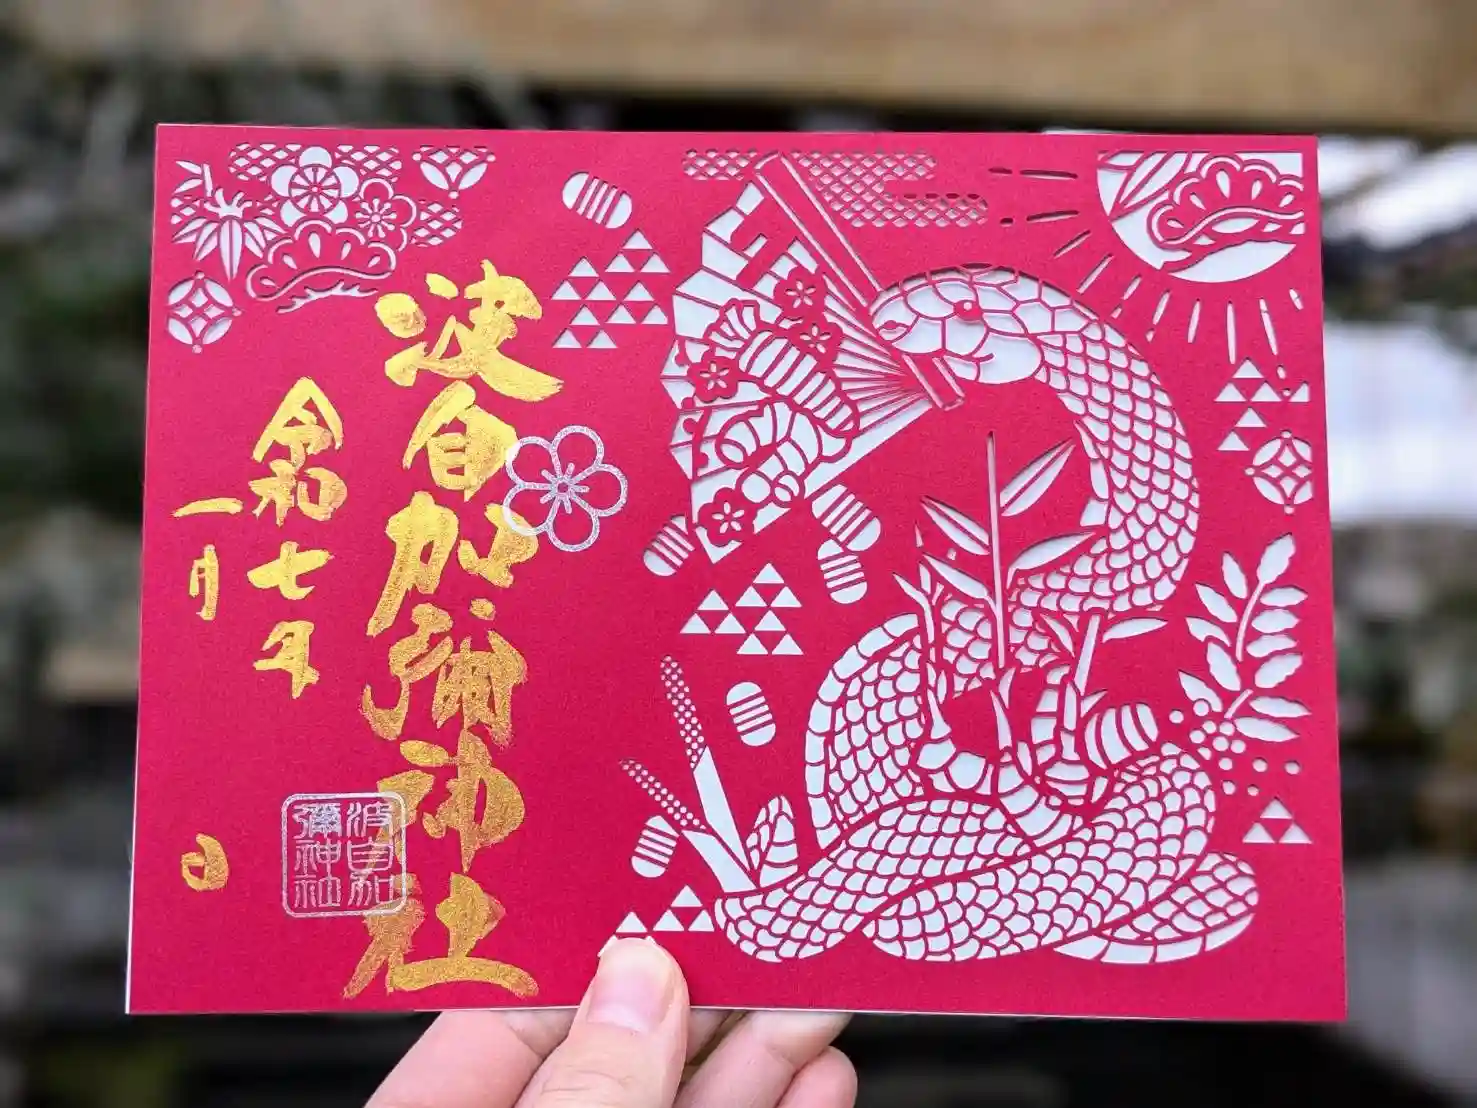 波自加彌神社
令和七年
一月 日
波自加
彌神社